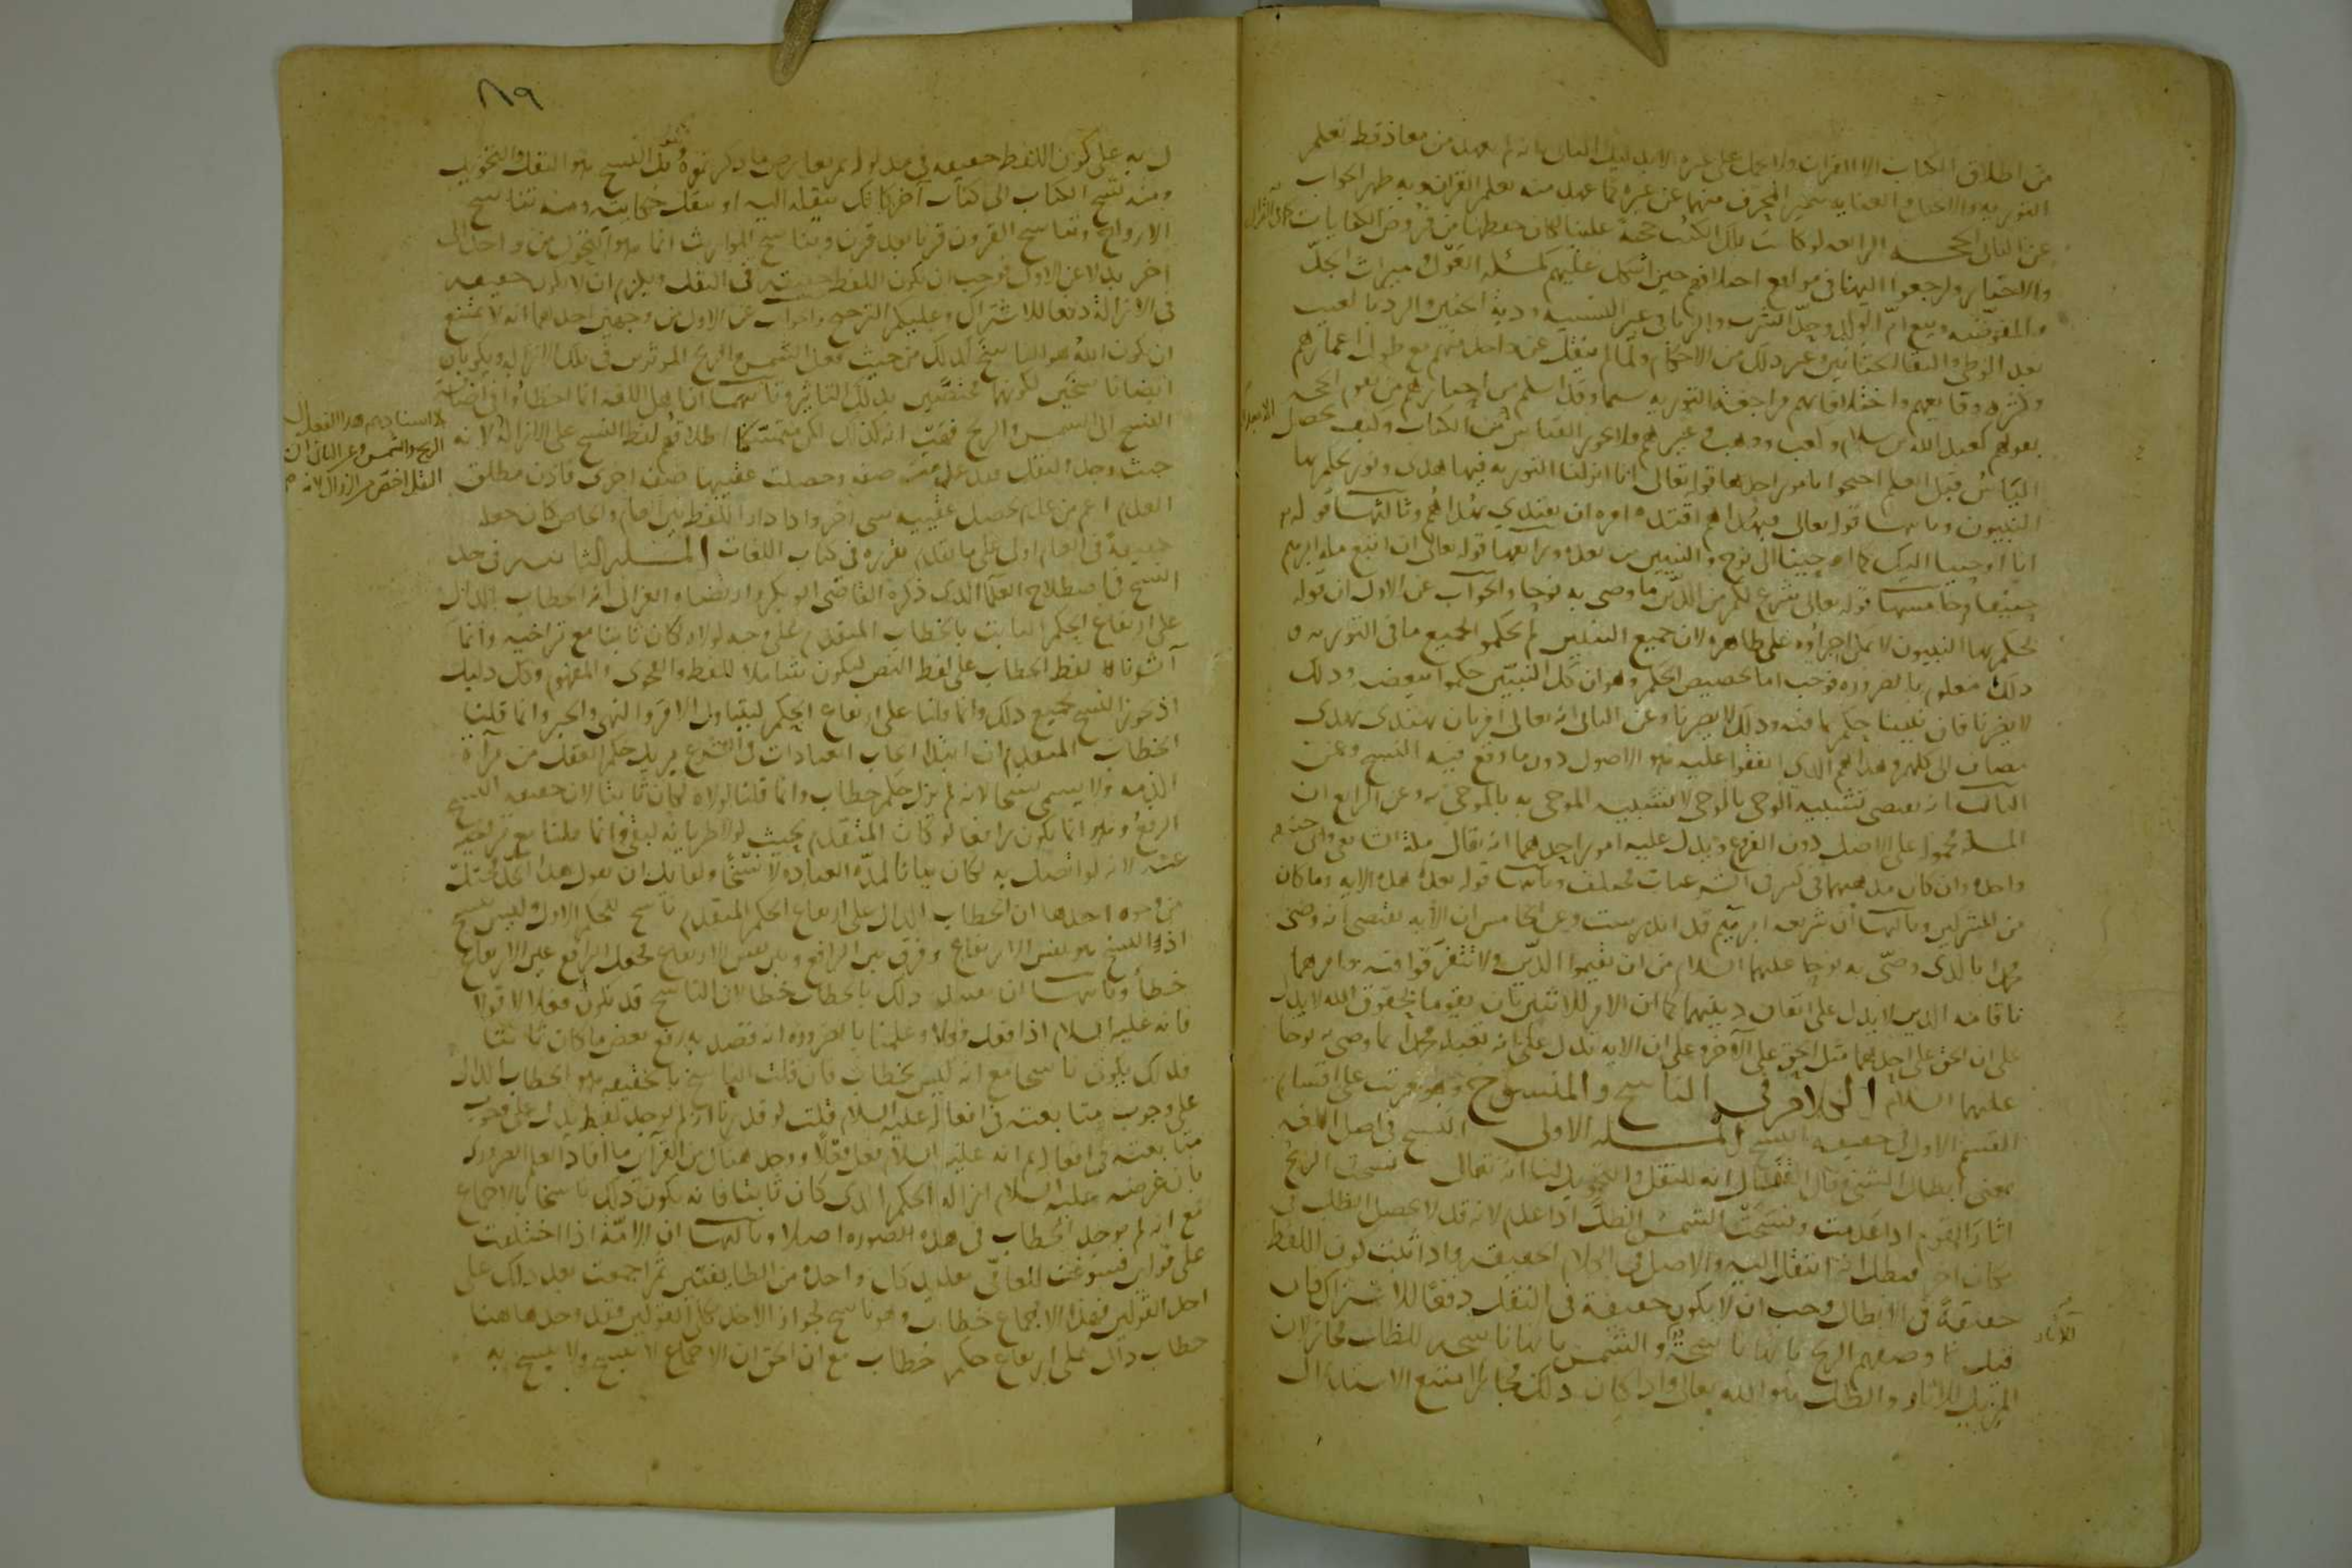 من اطلاق الكتاب الا القران ولا يحمل على غيره الا بدليل الثاني انه لم يعهد من معاذ قط تعلم
التوريه والانجيل والعنايه بتمييز المحرف منهما عن غيره كما عهد منه تعلم القران وبه ظهر الجواب
عن الثاني الحجه الرابعه لو كانت تلك الكتب حجة علينا لكان حفظها من فروض الكفايات كما في القرآن
والاخبار ولرجعوا اليها في مواضع اختلافهم حين اشكل عليهم كمسئله العول وميراث الجد
والمفوضه وبيع ام الولد وحد الشرب والربا في غير النسيه ودية الجنين والرد بالعيب
بعد الوطي والتقا الختانين وغير ذلك من الاحكام ولما لم ينقل عن واحد منهم مع طول اعمارهم
وكثره وقايعهم واختلافاتهم مراجعة التوريه سيما وقد اسلم من احبارهم من تقوم الحجه
بقولهم كعبد الله بن سلام وكعب ووهب وغيرهم ولا يجوز القياس الا بعد اليأس من الكتاب وكيف يحصل
اليأس قبل العلم احتجوا بامور احدها قوله تعالى انا انزلنا التوريه فيها هدى ونور يحكم بها
النبيون وثانيها قوله تعالى فبهداهم اقتده امره ان يقتدي بهداهم وثالثها قوله
انا اوحينا اليك كما اوحينا الى نوح والنبيين من بعده ورابعها قوله تعالى ان اتبع ملة ابرهيم
حنيفا وخامسها قوله تعالى شرع لكم من الدين ما وصى به نوحا والجواب عن الاول ان قوله
يحكم بها النبيون لا يمكن اجراؤه على ظاهره لان جميع النبيين لم يحكموا بجميع ما في التوريه و
ذلك معلوم بالضروره فوجب اما تخصيص الحكم وهو ان كل النبيين حكموا ببعضه وذلك
لا يضرنا فان نبينا حكم بما فيه وذلك لا يضرنا وعن الثاني انه تعالى امر بان يهتدى بهدى
مضاف الى كلهم وهداهم الذي اتفقوا عليه هو الاصول دون ما وقع فيه النسخ وعن
الثالث انه يقتضي تشبيه الوحي بالوحي لا تشبيه الموحى به بالموحى به وعن الرابع ان
المله محموله على الاصل دون الفروع ويدل عليه امور احدها انه يقال ملة الشافعي وابي حنيفه
واحده وان كان مذهبهما في كثير في الشرعيات مختلف وثانيها قوله بعد هذه الايه وما كان
من المشركين وثالثها ان شريعه ابرهيم قد اندرست وعن الخامس ان الايه تقتضي انه وصى
محمدا بالذي وصى به نوحا عليهما السلام من ان يقيموا الدين ولا تتفرقوا فيه وامرهما
باقامه الدين لا يدل على اتفاق دينهما كما ان الامر للاثنين بان يقوما بحقوق الله لا يدل
على ان الحق على احدهما مثل الحق على الآخر وعلى ان الايه تدل على انه تعبد محمدا بما وصى به نوحا
عليهما السلام الكلام في الناسخ والمنسوخ وهو مرتب على اقسام
القسم الاول في حقيقه النسخ المسله الاولى النسخ في اصل اللغه
بمعنى ابطال الشيء وقال القفال انه للنقل والتحويل لنا انه تقال نسخت الريح
اثار القوم اذا عدمت ونسخت الشمس الظل اذا عدم لانه قد لا يحصل الظل في
مكان اخر فيظن انه انتقل اليه والاصل في الكلام الحقيقه واذا ثبت كون اللفظ
حقيقة في الابطال وجب ان لا يكون حقيقة في النقل دفعا للاشتراك فان
قيل وصفهم الريح بانها ناسخة والشمس بانها ناسخه للظل مجاز لان
المزيل للاثار والظل هو الله تعالى واذا كان ذلك مجازا امتنع الاستدلال
للآثار
٨٩
ل به على كون اللفظ حقيقه في مدلوله ثم نعارض ما ذكرتموه ونقول النسخ هو النقل والتحويل
ومنه نسخ الكتاب الى كتاب آخر كانك تنقله اليه او تنقل حكايته ومنه تناسخ
الارواح وتناسخ القرون قرنا بعد قرن وتناسخ المواريث انما هو التحول من واحد الى
اخر بدلا عن الاول فوجب ان يكون اللفظ حقيقه في النقل ويلزم ان لا يكون حقيقه
في الازالة دفعا للاشتراك وعليكم الترجيح والجواب عن الاول من وجهين احدهما انه لا يمتنع
ان يكون الله هو الناسخ لذلك من حيث فعل الشمس والريح الموثرين في تلك الازاله ويكونان
ايضا ناسخين لكونهما مختصين بذلك التاثير وثانيهما ان اهل اللغه انما اخطاوا في اضافه
النسخ الى الشمس والريح فهب انه كذلك لكن متمسكنا اطلاقهم لفظ النسخ على الازالة
لا اسنادهم هذا الفعل الى
الريح والشمس وعن الثاني ان
النقل اخص من الزوال لانه
حيث وجد النقل فقد عدمت صفه وحصلت عقيبها صفه اخرى فاذن مطلق
العدم اعم من عدم يحصل عقيبه شي اخر واذا دار اللفظ بين العام والخاص كان جعله
حقيقة في العام اولى على ما تقدم تقريره في كتاب اللغات المسله الثانيه في حد
النسخ في اصطلاح العلما الذي ذكره القاضي ابو بكر وارتضاه الغزالي انه الخطاب الدال
على ارتفاع الحكم الثابت بالخطاب المتقدم على وجه لولاه لكان ثابتا مع تراخيه وانما
آثرنا لفظ الخطاب على لفظ النص ليكون شاملا للفظ والفحوى والمفهوم وكل دليل
اذ يجوز النسخ بجميع ذلك وانما قلنا على ارتفاع الحكم ليتناول الامر والنهي والخبر وانما قلنا
الخطاب المتقدم لان ابتدا ايجاب العبادات في الشرع يزيل حكم العقل من برآءة
الذمه ولا يسمى نسخا لانه لم يزل حكم خطاب وانما قلنا لولاه لكان ثابتا لان حقيقه النسخ
الرفع وهو انما يكون رافعا لو كان المتقدم بحيث لولا طريانه لبقي وانما قلنا مع تراخيه
عنه لانه لو اتصل به لكان بيانا لمدة العباده لا نسخا ولقايل ان يقول هذا الحد مختل
من وجوه احدها ان الخطاب الدال على ارتفاع الحكم المتقدم ناسخ للحكم الاول وليس بنسخ
اذ النسخ هو نفس الارتفاع وفرق بين الرافع وبين نفس الارتفاع فجعل الرافع عين الارتفاع
خطأ وثانيها ان تقييد ذلك بالخطاب خطا لان الناسخ قد يكون فعلا لا قولا
فانه عليه السلام اذا فعل فعلا وعلمنا بالضروره انه قصد به رفع بعض ما كان ثابتا
فذلك يكون ناسخا مع انه ليس بخطاب فان قلت الناسخ بالحقيقه هو الخطاب الدال
على وجوب متابعته في افعاله عليه السلام قلت لو قدرنا انه لم يوجد لفظ يدل على وجوب
متابعته في افعاله ثم انه عليه السلام فعل فعلا ووجد هناك من القرآين ما افاد العلم الضروري
بان غرضه عليه السلام ازالة الحكم الذي كان ثابتا فانه يكون ذلك ناسخا بالاجماع
مع انه لم يوجد الخطاب في هذه الصوره اصلا وثالثها ان الامة اذا اختلفت
على قولين فسوغت للعامي تقليد كل واحدة من الطايفتين ثم اجمعت بعد ذلك على
احد القولين فهذا الاجماع خطاب وهو ناسخ لجواز الاخذ بكلى القولين فقد وجد هاهنا
خطاب دال على ارتفاع حكم خطاب مع ان الحق ان الاجماع لا ينسخ ولا ينسخ به